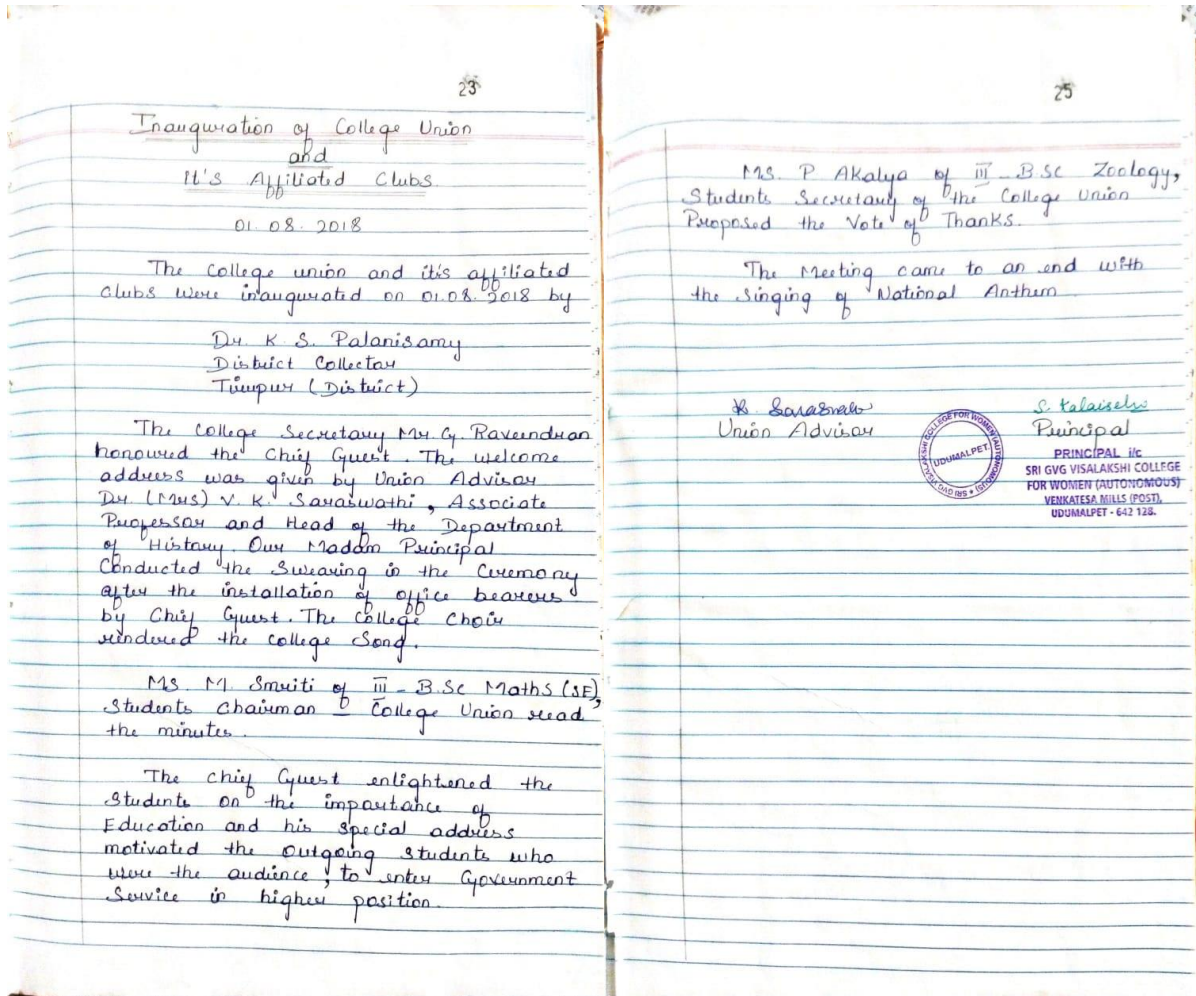 23
Inauguration of College Union
and
It's Affiliated Clubs.
01.08.2018
The College union and it's affiliated
clubs were inaugurated on 01.08.2018 by
Dr. K. S. Palanisamy
District Collector
Tirupur (District)
The College Secretary Mr. G. Raveendran
honoured the Chief Guest. The welcome
address was given by Union Advisor
Dr. (Mrs) V. K. Saraswathi, Associate
Professor and Head of the Department
of History. Our Madam Principal
Conducted the Swearing in the Ceremony
after the installation of office bearers
by Chief Guest. The College Choir
rendered the College Song.
Ms. M. Smriti of III - B.Sc Maths (SF),
Students Chairman - College Union read
the minutes.
The Chief Guest enlightened the
Students on the importance of
Education and his special address
motivated the outgoing students who
were the audience, to enter Government
Service in higher position.
25
Ms. P. Akalya of III - B.Sc Zoology,
Students Secretary of the College Union
Proposed the Vote of Thanks.
The Meeting came to an end with
the singing of National Anthem
Union Advisor
SRI GVG VISALAKSHI COLLEGE FOR WOMEN (AUTONOMOUS)
UDUMALPET
S. Kalaiselvi
Principal
PRINCIPAL i/c
SRI GVG VISALAKSHI COLLEGE
FOR WOMEN (AUTONOMOUS)
VENKATESA MILLS (POST),
UDUMALPET - 642 128.